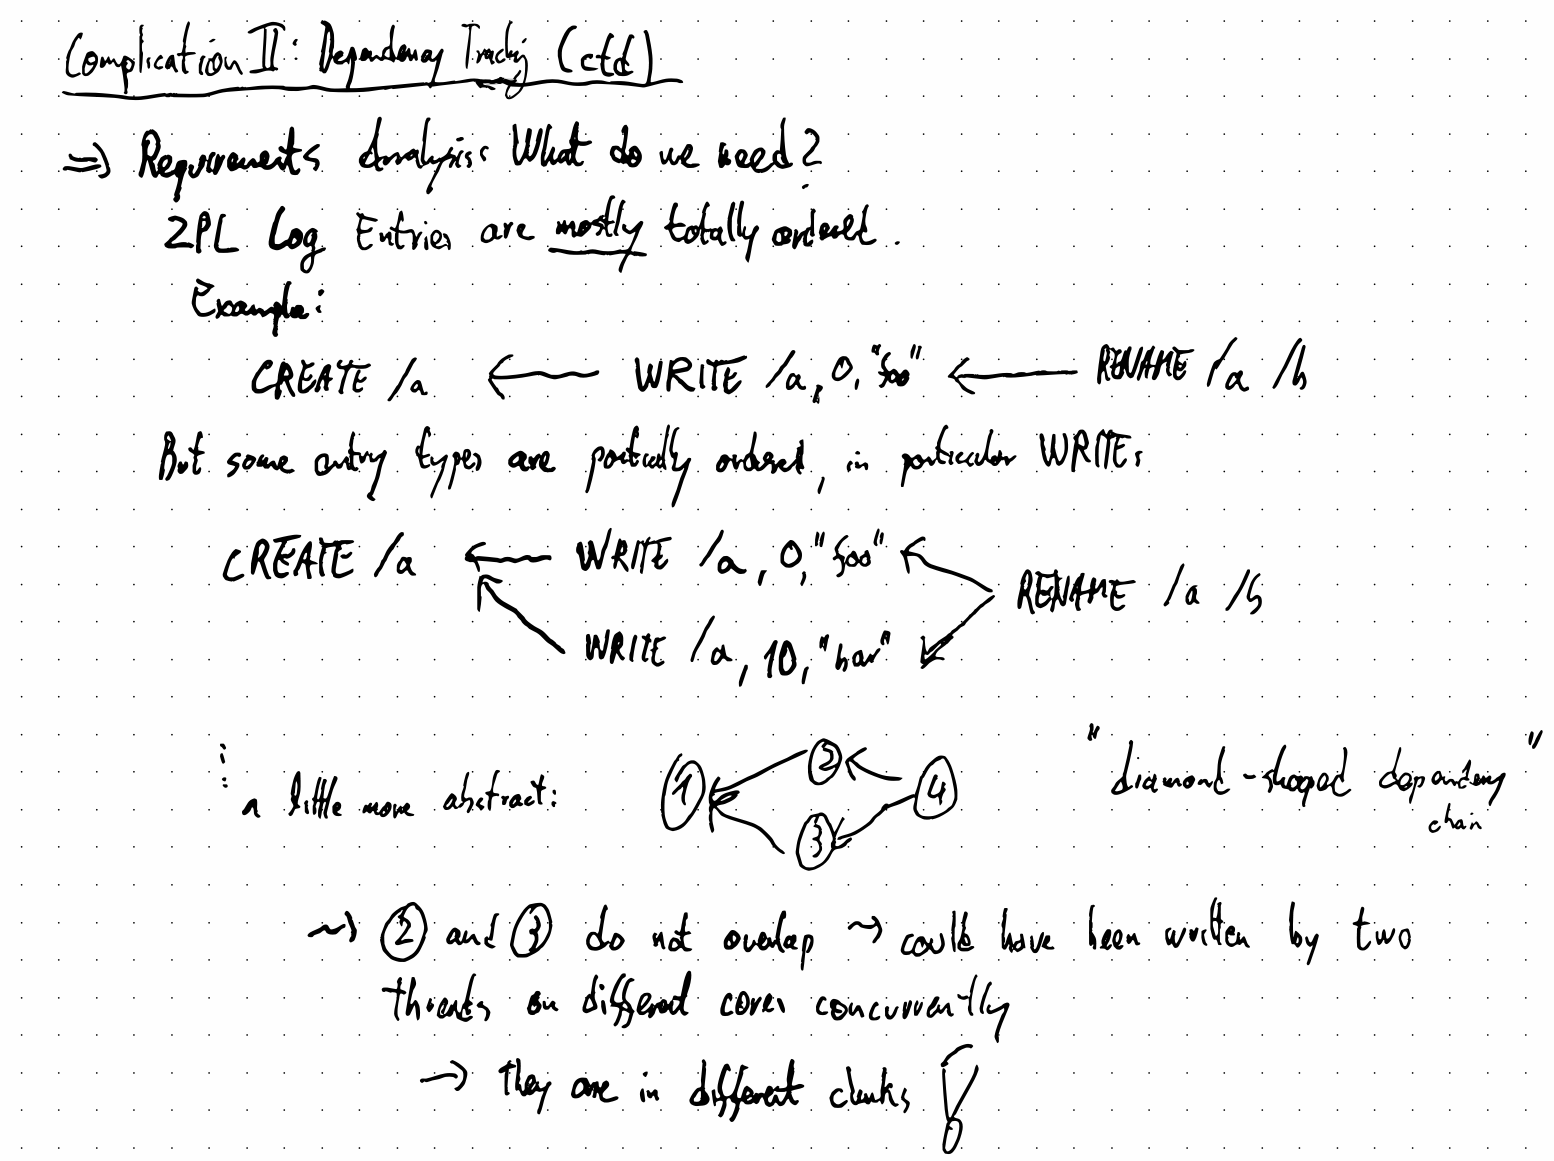 Complication II: Dependency Tracking (ctd)
=> Requirements Analysis: What do we need?
ZPL Log Entries are mostly totally ordered.
Example:
CREATE /a ← WRITE /a, 0, "foo" ← RENAME /a /b
But some entry types are partially ordered, in particular WRITEs
CREATE /a ← WRITE /a, 0, "foo"
RENAME /a /b
WRITE /a, 10, "bar"
a little more abstract: 1 2 3 4 "diamond-shaped dependency chain"
~> 2 and 3 do not overlap ~> could have been written by two
threads on different cores concurrently
→ they are in different chunks !